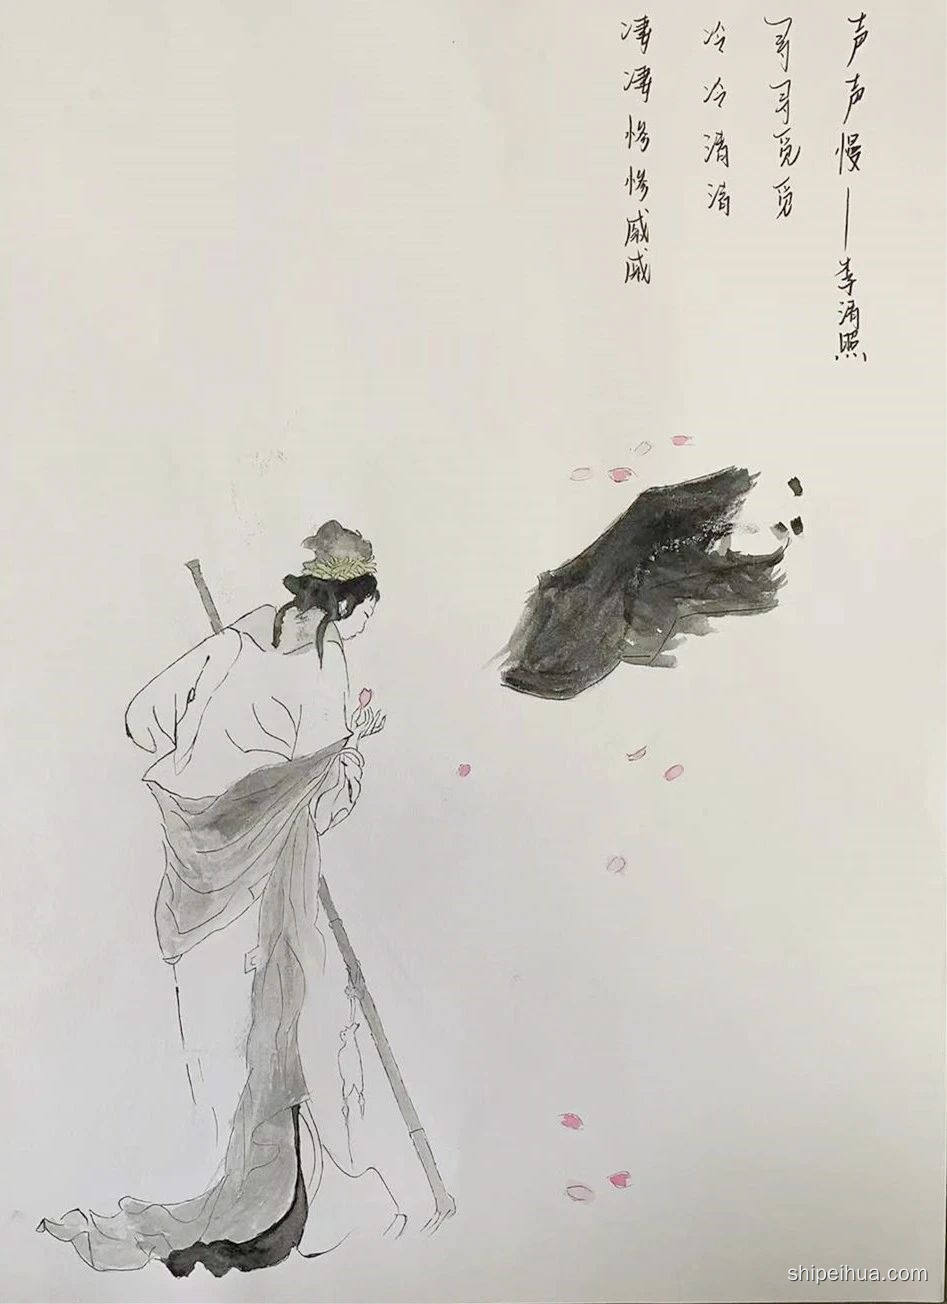 声声慢——李清照
寻寻觅觅
冷冷清清
凄凄惨惨戚戚
shipeihua.com